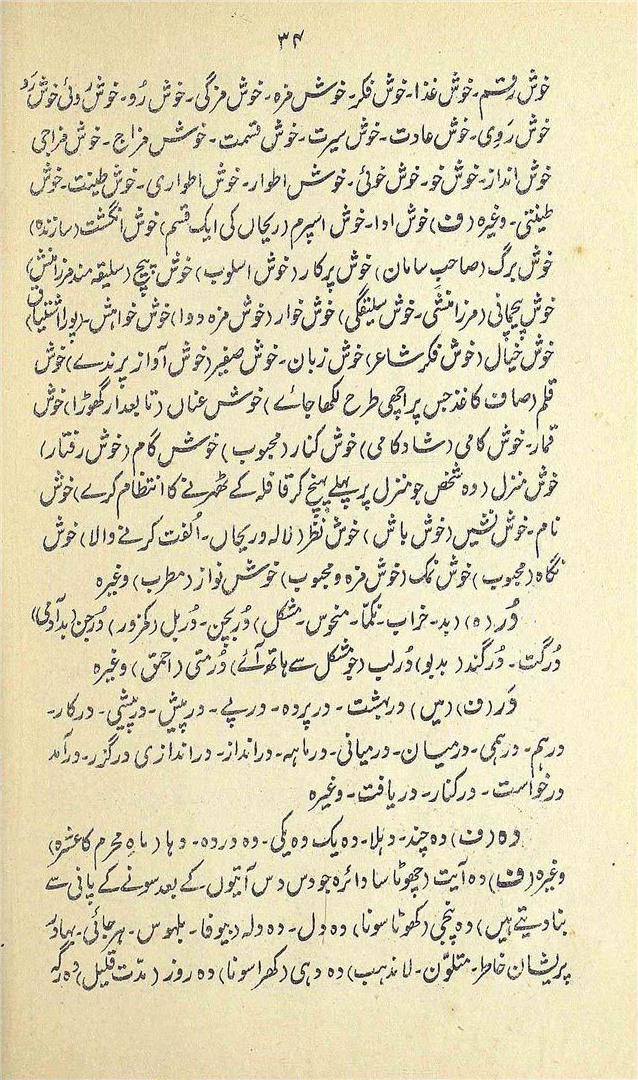 ۳۴
خوش رقم۔ خوش غذا۔ خوش فکر۔ خوش مزہ۔ خوش مزگی۔ خوش رُو۔ خوش روئی خوش رَو
خوش رَوِی۔ خوش عادت۔ خوش سیرت۔ خوش قسمت۔ خوش مزاج۔ خوش مزاجی
خوش انداز۔ خوش خو۔ خوش خوئی۔ خوش اطوار۔ خوش اطواری۔ خوش طینت۔ خوش
طینتی۔ وغیرہ (ف) خوش ادا۔ خوش اسپرم (ریحاں کی ایک قسم) خوش انگشت (سازندہ)
خوش برگ (صاحبِ سامان) خوش پرکار (خوش اسلوب) خوش پیچ (سلیقہ مند مرزا منش)
خوش پیچانی (مرزا منشی۔ خوش سلیقگی) خوش خوار (خوش مزہ دوا) خوش خواہش (پورا اشتیاق)
خوش خیال (خوش فکر شاعر) خوش زبان۔ خوش صفیر (خوش آواز پرندے) خوش
قلم (صاف کاغذ جس پر اچھی طرح لکھا جائے) خوش عناں (تابعدار گھوڑا) خوش
قمار۔ خوش کامی (شادکامی) خوش کنار (محبوب) خوش گام (خوش رفتار)
خوش منزل (وہ شخص جو منزل پر پہلے پہنچ کر قافلہ کے ٹھہرنے کا انتظام کرے) خوش
نام۔ خوش نشیں (خوش باش) خوش نظر (لالہ و ریحاں۔ اُلفت کرنے والا) خوش
نگاہ (محبوب) خوش نمک (خوش مزہ و محبوب) خوش نواز (مطرب) وغیرہ
دُر (ہ) (بد۔ خراب۔ نکمّا۔ منحوس۔ مشکل) دُربچن۔ دُربل (کمزور) دُرجن (بد آدمی)
دُرگت۔ دُرگند (بدبو) دُرلب (جو مشکل سے ہاتھ آئے) دُرمتی (احمق) وغیرہ
دَر (ف) (میں) دربہشت۔ درپردہ۔ درپے۔ درپیش۔ درپیشی۔ درکار۔
درہم۔ درہمی۔ درمیان۔ درمیانی۔ درماہہ۔ درانداز۔ دراندازی درگزر۔ درآمد
درخواست۔ درکنار۔ دریافت۔ وغیرہ
دہ (ف) دہ چند۔ دہلا۔ دہ یک دہ یکی۔ دہ دردہ۔ دہا (ماہِ محرم کا عشرہ)
وغیرہ (ف) دہ آیت (چھوٹا سا دائرہ جو دس دس آیتوں کے بعد سونے کے پانی سے
بنادیتے ہیں) دہ پنجی (کھوٹا سونا) دہ دل۔ دہ دلہ (بیوفا۔ بلہوس۔ ہرجائی۔ بہادر
پریشان خاطر۔ متلوّن۔ لامذہب) دہ دہی (کھرا سونا) دہ روز (مدّت قلیل)